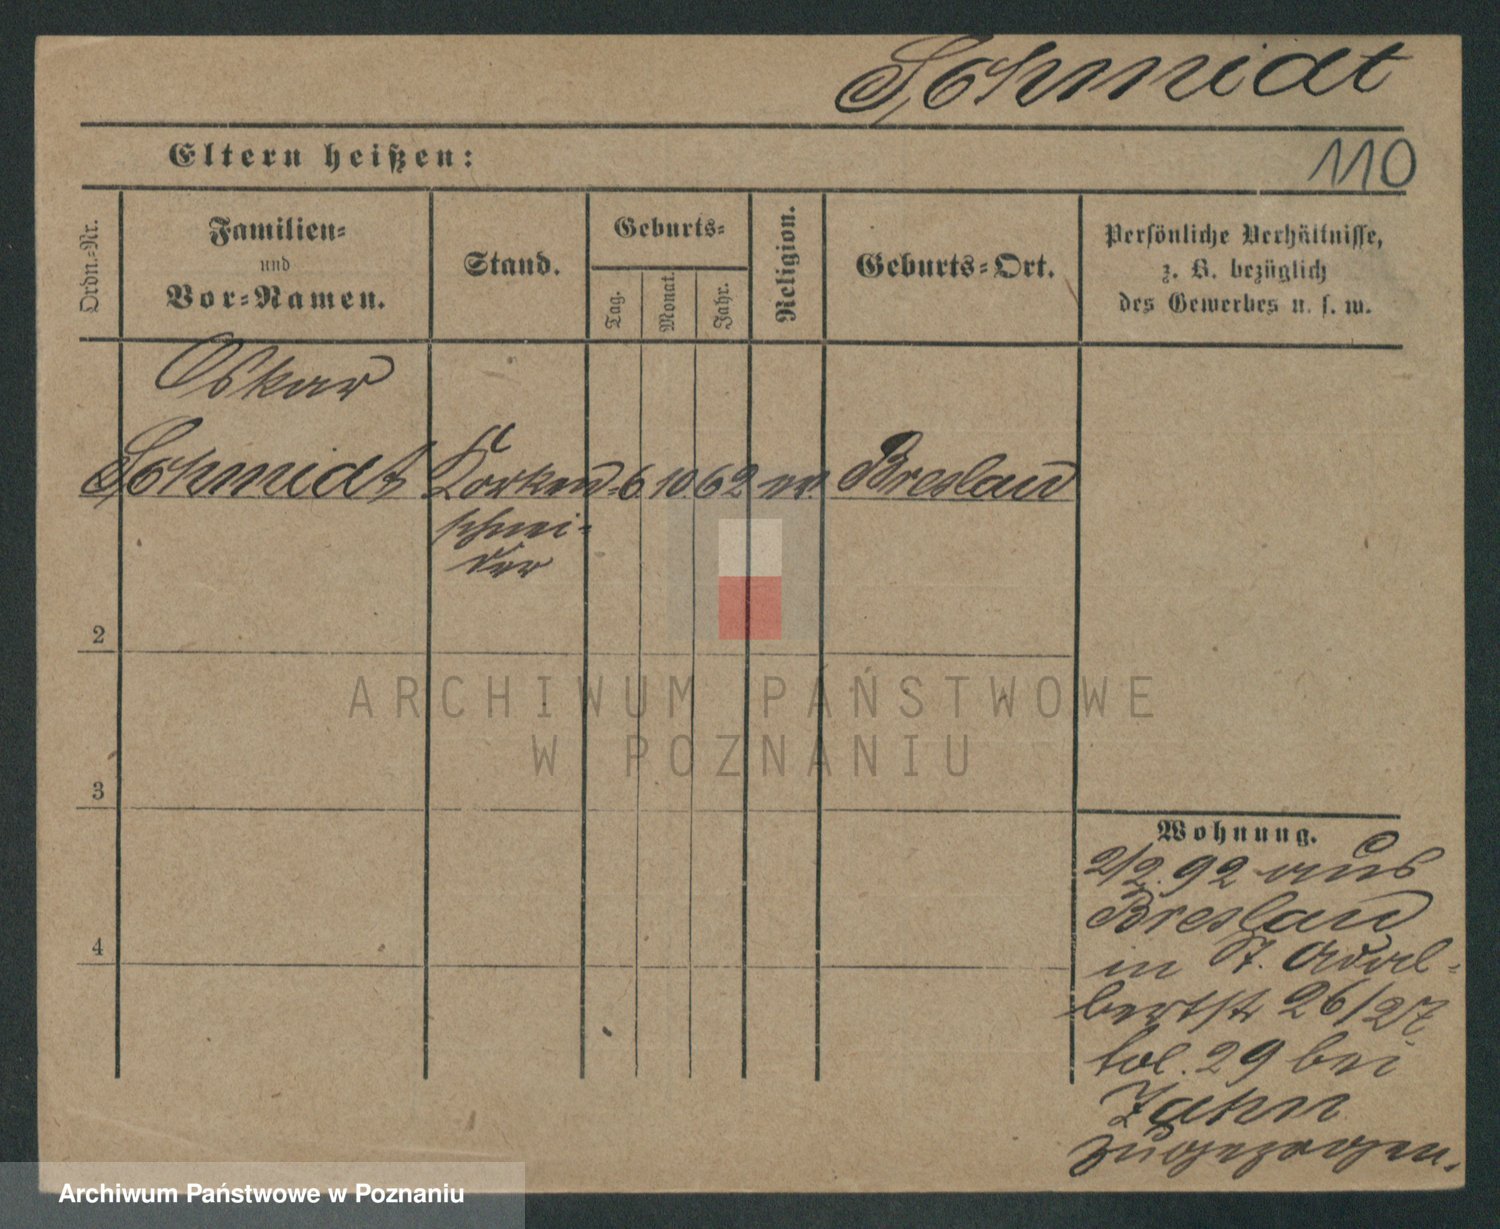 Schmidt
Eltern heißen:
110
Ordn.-Nr.
Familien-
und
Vor-Namen.
Stand.
Geburts-
Tag.
Monat.
Jahr.
Religion.
Geburts-Ort.
Persönliche Verhältnisse,
z. B. bezüglich
des Gewerbes u. s. w.
Oskar
Schmidt Korken- 6 10 62 ev. Breslau
schnei-
der
2
3
4
Wohnung.
2/2. 92 aus
Breslau
in St. Adal-
bertstr 26/27
bei
Zahn
zugezogen.
ARCHIWUM PAŃSTWOWE
W POZNANIU
Archiwum Państwowe w Poznaniu